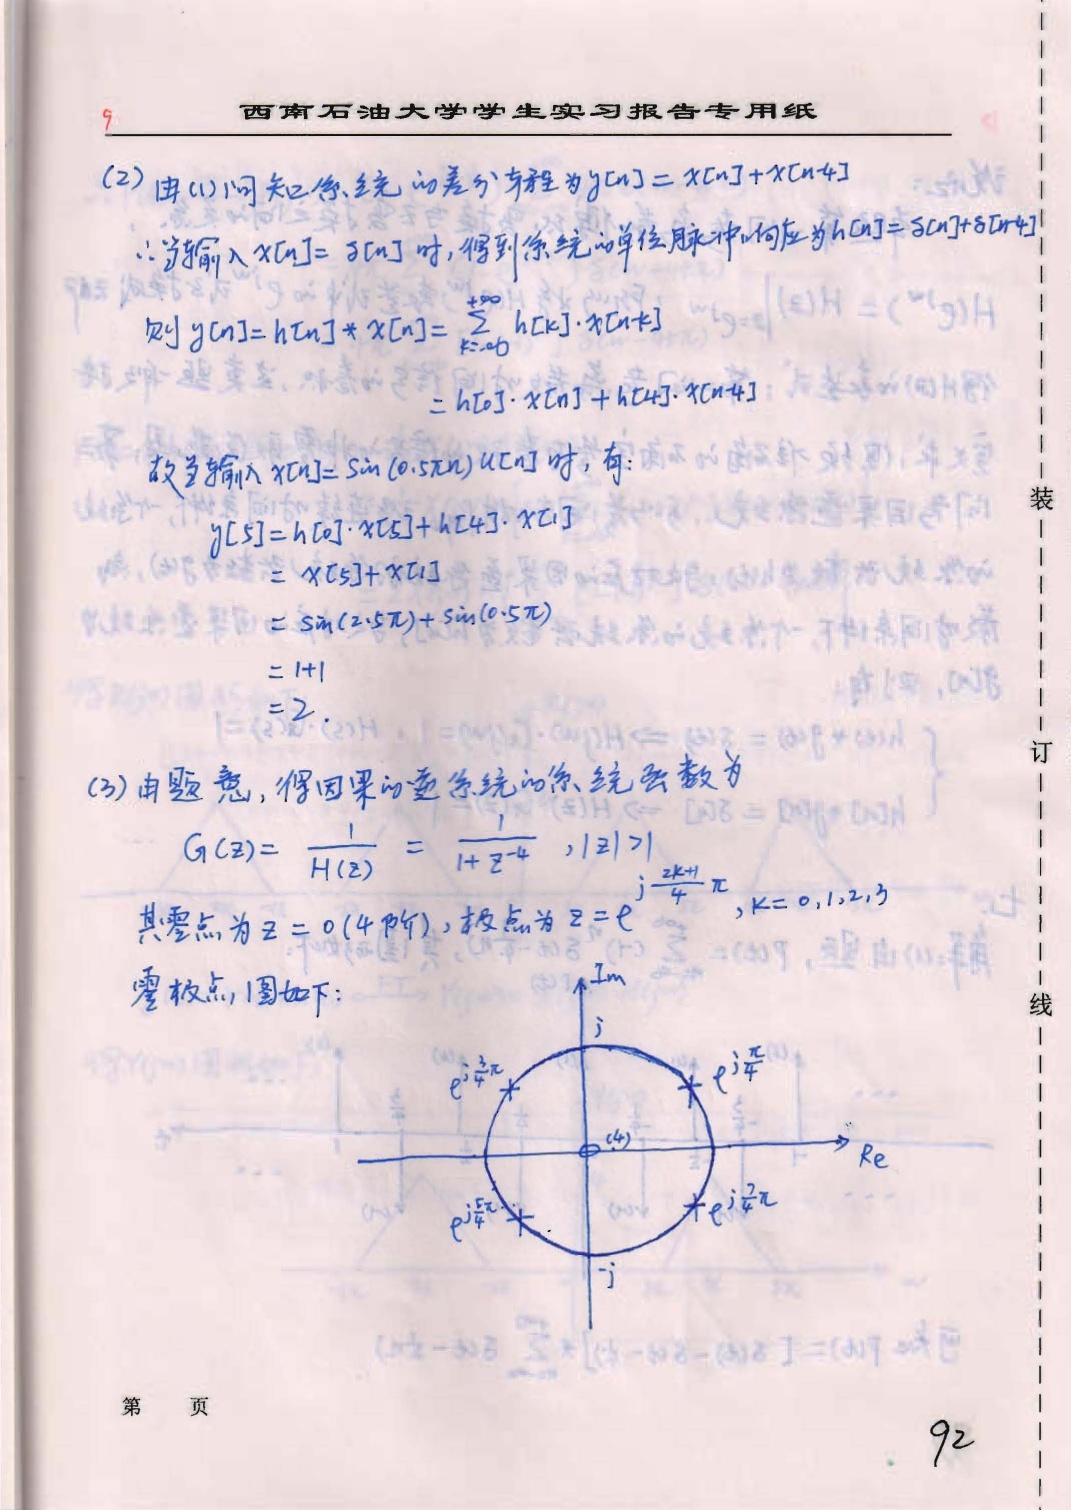 9
西南石油大学学生实习报告专用纸
(2) 由(1)问知系统的差分方程为y[n]=x[n]+x[n-4]
∴当输入x[n]=δ[n]时,得到系统的单位脉冲响应为h[n]=δ[n]+δ[n-4]
则 y[n]=h[n]*x[n]=∑_{k=-∞}^{+∞} h[k]·x[n-k]
=h[0]·x[n]+h[4]·x[n-4]
故当输入x[n]=sin(0.5πn)u[n]时,有:
y[5]=h[0]·x[5]+h[4]·x[1]
= x[5]+x[1]
= sin(2.5π)+sin(0.5π)
= 1+1
=2.
(3) 由题意,得因果的逆系统的系统函数为
G(z)= 1/H(z) = 1/(1+z^{-4}) ,|z|>1
其零点为z=0(4阶),极点为z=e^{j\frac{2k+1}{4}π},k=0,1,2,3
零极点图如下:
Im
j
e^{j\frac{3}{4}π}
e^{j\frac{π}{4}}
(4)
Re
e^{j\frac{5}{4}π}
e^{j\frac{7}{4}π}
-j
第 页
92
装
订
线